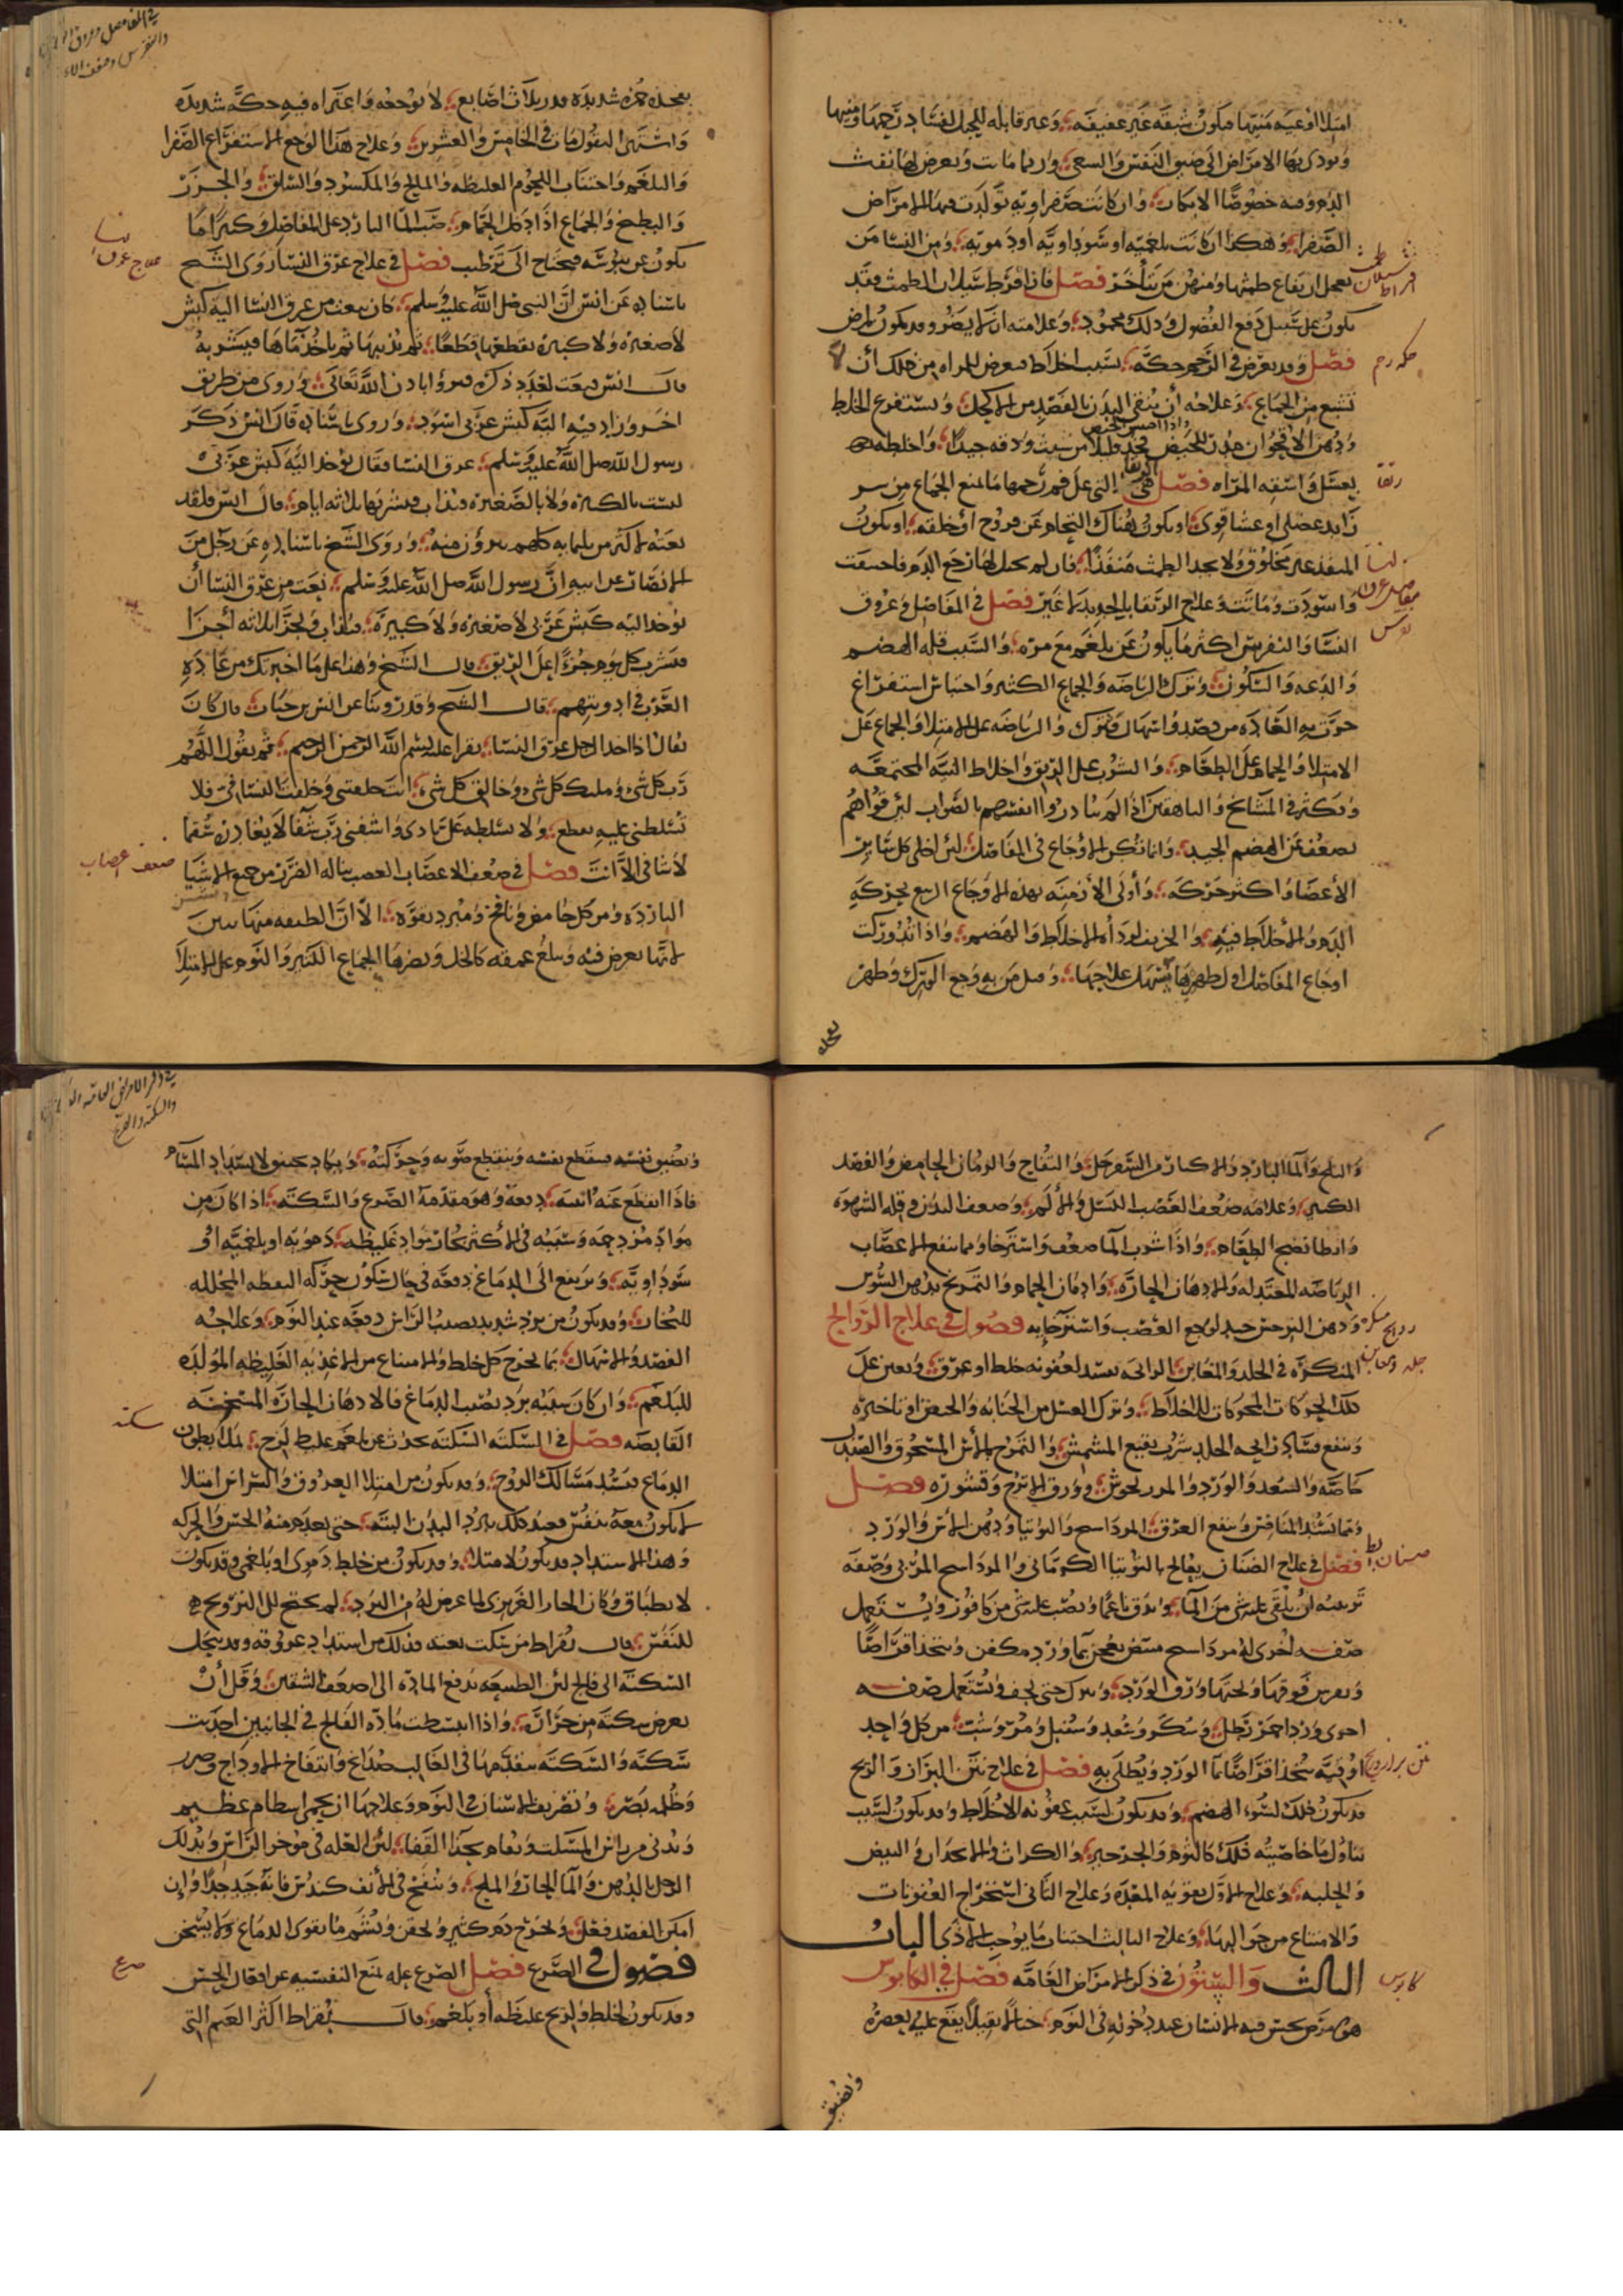 امتلا اوعية منيها فيكون شبقه غير عفيفه وغير قابله للحبل لفساد رحمها ومنيها
ويودى بها الامراض الى ضيق النفس والسعى وربما ماتت ويعرض لها نفث
الدم ومنه خصوصا الابكار وان كانت صفراويه تولدت فيها الامراض
الصفرا وهكذا ان كانت بلغميه او سوداويه او دمويه ومن النسا من
يعجل ارتفاع طمثها ومنهن من يتأخر فصل فاذا افرط سيلان الطمث فقد
يكون على سبيل دفع الفضول وذلك محمود وعلامته ان لا يضر وقد يكون لمرض
فصل وقد يعرض فى الرحم حكه بسبب اخلاط فيعرض للمراه من ذلك أن لا
تشبع من الجماع وعلاجه أن ينقى البدن بالفصد من الاكحل ويستفرغ الخلط
يعسل واسقه المراه فصل هى التى على فم رحمها مانع الجماع من
زايد عضلى او غشا قوى او يكون هناك التحام عن قروح او خلقه او يكون
المنفذ غير مخلوق ولا يجد الطمث منفذا فان لم يحتل لها رجع الدم فاحتبست
واسودت وماتت وعلاج الرتقا بالحديد لا غير فصل فى المفاصل وعروق
النسا والنقرس اكثر ما يكون عن بلغم مع مره والسبب قله الهضم
والدعه والسكون وترك الرياضه والجماع الكثير واحتباس استفراغ
جرت به العاده من فصد واسهال فترك والرياضه على الامتلا والجماع على
الامتلا والحمام على الطعام والشرب على الريق واخلاط النيه المجتمعه
ويكثر فى المشايخ والناهقين اذا لم يبادروا انفسهم بالصواب لئن قواهم
يضعف عن الهضم الجيد وانما تكثر الاوجاع فى المفاصل لئن اخلى كل ساير
الأعضا واكثر حركه وأولى الأزمنه بهذه الاوجاع الربيع لحركة
الدم والأخلاط فيه والخريف لرداه الاخلاط والهضم واذا تدوركت
اوجاع المفاصل اول ظهورها سهل علاجها وقيل من به وجع الورك وظهر
بفخذه حمره شديده قدر ثلاث اصابع لا توجعه واعتراه فيه حكه شديده
واشتهى البقول مات فى الخامس والعشرين وعلاج هذا الوجع الاستفراغ الصفرا
والبلغم واجتناب اللحوم الغليظه والمالح والمكسود والسلق والجزر
والبطيخ والجماع اذا دخل الحمام صب الما البارد على المفاصل وكثيرا ما
يكون عن يبوسه فيحتاج الى ترطيب فصل فى علاج عرق النسا روى الشيخ
باسناده عن انس ان النبى صلى الله عليه وسلم كان ينعت من عرق النسا الية كبش
لا صغيره ولا كبيره يقطعها قطعا ثم يذيبها ثم ياخذ ماها فيشربه
قال انس فنعت لعدد ذكره فبرؤا باذن الله تعالى وروى من طريق
اخر وزاد فيه اليه كبش عربى اسود وروى باسناده قال انس ذكر
رسول الله صلى الله عليه وسلم عرق النسا فقال يؤخذ اليه كبش عربى
ليست بالكبيره ولا بالصغيره فتذاب فيشربها ثلاثه ايام قال انس فلقد
نعته لاكثر من ثلثمايه كلهم يبرؤ منه وروى الشيخ باسناده عن رجل من
الانصار عن ابيه ان رسول الله صلى الله عليه وسلم نعت من عرق النسا أن
يوخذ اليه كبش عربى لا صغيره ولا كبيره فتذاب وتجزا ثلاثه أجزا
فيشرب كل يوم جزءا على الريق قال الشيخ وهذا على ما اخبرتك من عاده
العرب فى ادويتهم قال الشيخ وقد روينا عن انس بن حباب قال كان
يقال اذا اخذ الرجل عرق النسا يقرا عليه بسم الله الرحمن الرحيم ثم يقول اللهم
رب كل شئ ومليك كل شئ وخالق كل شئ انت خلقتنى وخلقت النسا فى فلا
تسلطنى عليه بقطع ولا تسلطه على باذى واشفنى رب شفا لا يغادر سقما
لا شافى الا انت فصل فى ضعف الاعصاب العصب يناله الضرر من جميع الاشيا
البارده ومن كل حامض ونافخ ومبرد بقوه الا ان
لانها يعرض فيه ويبلغ عمقه كالخل ويضرها الجماع الكثير والنوم على الامتلا
والثلج والما البارد والاكثار من السفرجل والتفاح والرومان الحامض والفصد
الكثير وعلامه ضعف العصب الكسل والألم وضعف البدن وقله الشهوه
وابطا نضج الطعام واذا شرب الما ضعف واسترخا ومما ينفع الاعصاب
الرياضه المعتدله والادهان الحاره وادمان الحمام والتمريخ بدهن السوس
ودهن النرجس جيد لوجع العصب واسترخايه فصول فى علاج الروايح
المنكره فى الجلد والمغابن الرائحه تفسد لعفونه خلط او عرق ويعين على
ذلك الحركات المحركات للاخلاط وترك الغسل من الجنابه والحيض او تاخيره
وينفع فساد رايحه الجلد شرب نقيع المشمش والتمرخ بالآس المسحوق والصندل
خاصه والسعد والورد وورق الاترج وقشوره فصل
ومما يشد المنافس ويمنع العرق المرداسج والتوتيا ودهن الآس والورد
فصل فى علاج الصنان يعالج بالتوتيا الكرمانى والمرداسج المربى وصفه
تربيته ان يلقى عليه شئ من الما ويدق ناعما ويصب عليه شئ من كافور ويستعمل
صفه اخرى له مرداسج مبيض يعجن بما ورد مكفن ويتخذ اقراصا
ويفرش فوقها وتحتها ورق الورد ويترك حتى يجف ويستعمل صفه
اخرى ورد احمر رطل وسك وسعد وسنبل ومر وشب من كل واحد
اوقيه يتخذ اقراصا بما الورد ويطلى به فصل فى علاج نتن البراز والريح
قد يكون ذلك لسوء الهضم وقد يكون لسبب عفونه الاخلاط وقد يكون لسبب
تناول ما خاصيته ذلك كالثوم والجرجير والكراث والانجدان والبيض
والحلبه وعلاج الاول بقويه المعده وعلاج الثانى استخراج العفونات
والامتناع من جوالبها وعلاج الثالث اجتناب ما يوجب الاذى الباب
الثالث والستون فى ذكر الامراض العامه فصل فى الكابوس
هو مرض يحس فيه الانسان عند دخوله فى النوم خيالا ثقيلا يقع عليه يعصره
ويضيق نفسه فينقطع صوته وحركته ويكاد يختنق لانسداد المسام
فاذا انقطع عنه انتبه دفعه وهو مقدمة الصرع والسكته اذا كان من
مواد مزدحمه وسببه فى الأكثر بخار مواد غليظه دمويه او بلغميه او
سوداويه ويرتفع الى الدماغ دفعه فى حال سكون حركه اليقظه المحلله
للبخارات وقد يكون من برد شديد يصيب الراس دفعه عند النوم وعلاجه
الفصد والاسهال بما يخرج كل خلط والامتناع من الاغذيه الغليظه المولده
للبلغم وان كان سببه برد يصيب الدماغ فالادهان الحاره المسخنه
القابضه فصل فى السكته السكته تحدث عن بلغم غليظ لزج يملا بطون
الدماغ فيسد مسالك الروح وقد يكون من امتلا العروق والشراين امتلا
لا يكون معه تنفس فعند ذلك يبرد البدن البته حتى يعدم منه الحس والحركه
وهذا الانسداد قد يكون لامتلاء وقد يكون من خلط دموى او بلغمى وقد يكون
لانطباق وكان الحار الغريزى لما عرض له من البرد لم يحتج الى الترويح
للنفس قال بقراط من يسكت بغته فذلك من انسداد عروقه وقد ينحل
السكته الى فالج لئن الطبيعه تدفع الماده الى اضعف الشقين وقل أن
يعرض سكته من حرارة واذا انبسطت ماده الفالج فى الجانبين احدثت
سكته والسكته يتقدمها فى الغالب صداع وانتفاخ الاوداج
وظلمه بصر وتصريف الاسنان فى النوم وعلاجها
ويدلك
الرجل بالدهن والما الحار والملح وينفخ فى الأنف كندس فانه جيد جدا وان
امكن الفصد فعل ويخرج دم كثير ويحقن ويشم ما يقوى الدماغ ولا يسخن
فصول فى الصرع فصل الصرع عله تمنع النفسيه عن افعال الحس
وقد يكون لخلط والريح غليظه أو بلغم قال بقراط اكثر الغنم التى